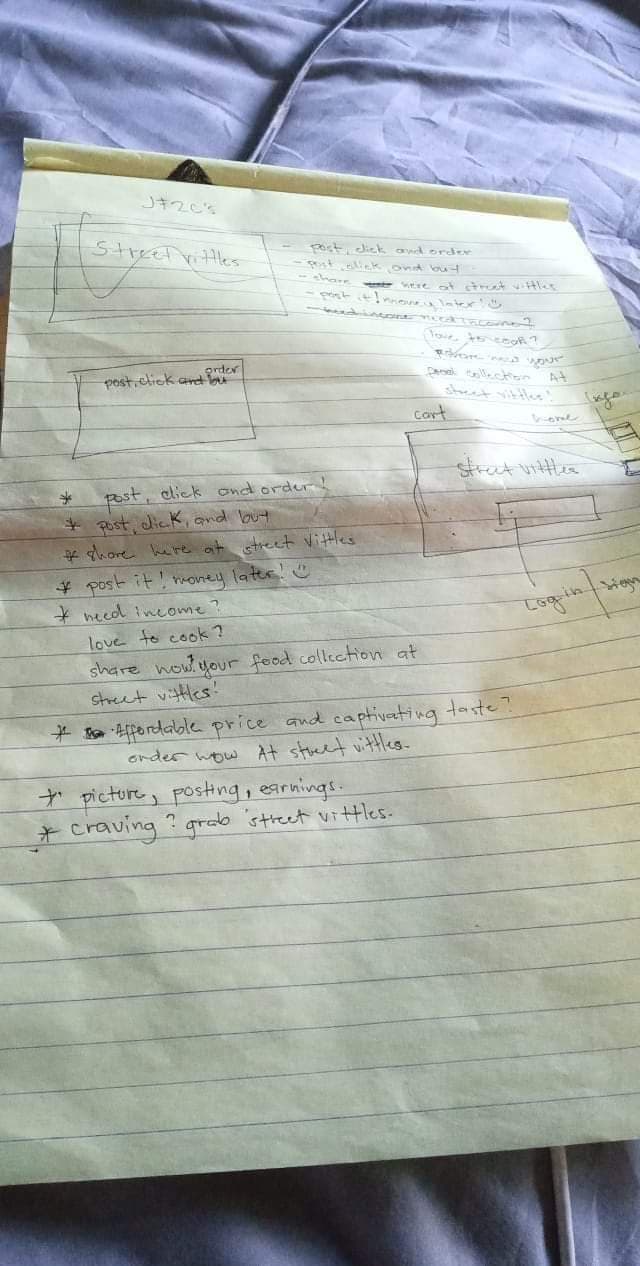 J+2C's
Street vittles
- post, click and order
- post, click, and buy
- share here at street vittles
- post it! money later!
- need income need income?
love to cook?
share now your
food collection At
street vittles!
post, click and buy
order
cart
home
logo
street vittles
Log in / sign
* post, click and order!
* post, click, and buy
* share here at street vittles
* post it! money later!
* need income?
love to cook?
share now! your food collection at
street vittles!
* Affordable price and captivating taste?
order now At street vittles.
* picture, posting, earnings.
* craving? grab street vittles.